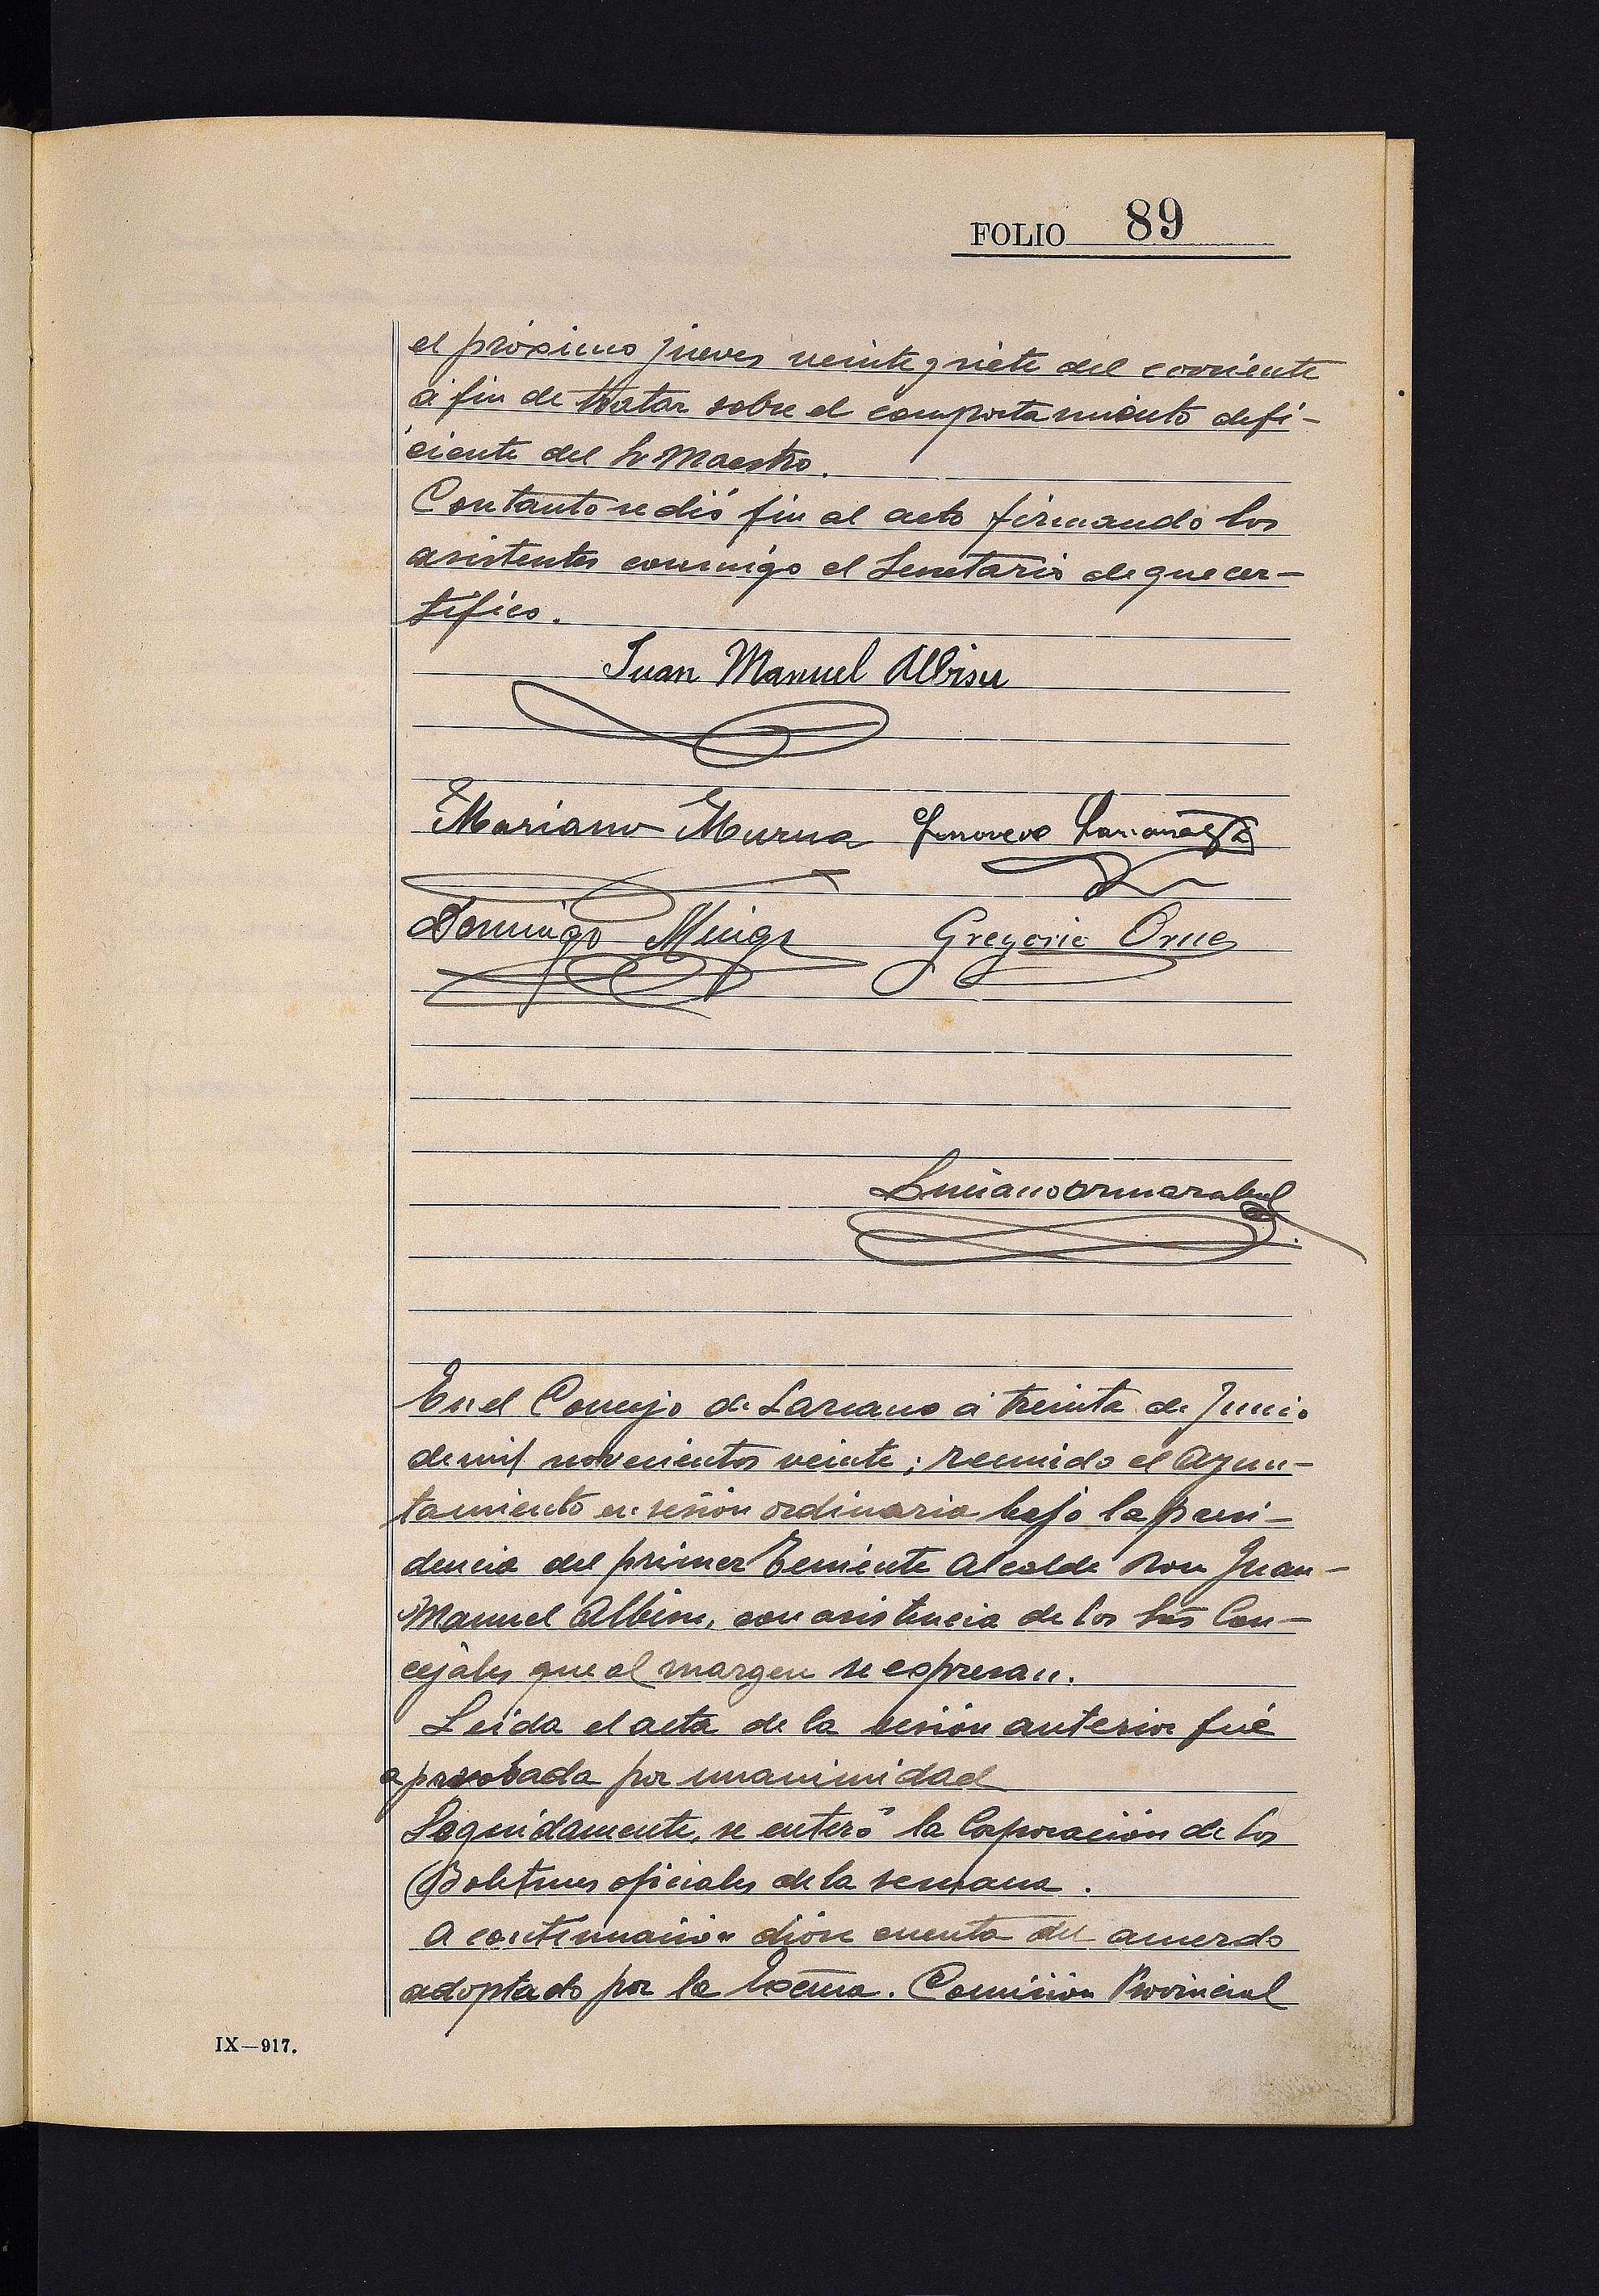 FOLIO 89
el próximo jueves veinte y siete del corriente
á fin de tratar sobre el comportamiento defi-
ciente del Sr Maestro.
Con tanto se dió fin al acto firmando los
asistentes conmigo el Secretario de que cer-
tifico.
Juan Manuel Albisu
Mariano Murua
Domingo Gregorio Orue
Luciano
En el Concejo de Lazcano á treinta de Junio
de mil novecientos veinte; reunido el Ayun-
tamiento en sesión ordinaria bajo la presi-
dencia del primer Teniente Alcalde Don Juan-
Manuel Albisu, con asistencia de los Srs Con-
cejales que al margen se espresan.
Leida el acta de la sesión anterior fué
aprobada por unanimidad
Seguidamente, se enteró la Corporación de los
Boletines oficiales de la semana.
A continuación dióse cuenta del acuerdo
adoptado por la Excma. Comisión Provincial
IX—917.